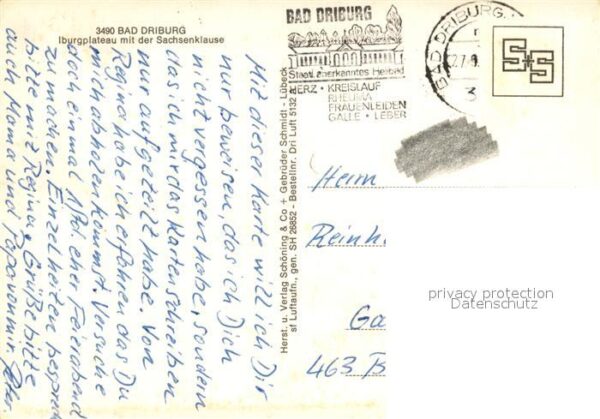 3490 BAD DRIBURG
Iburgplateau mit der Sachsenklause
Mit dieser Karte will ich Dir
nur beweisen, das ich Dich
nicht vergessen habe, sondern
das ich mir das Kartenschreiben
nur aufgeteilt habe. Von
Regina habe ich erfahren das Du
mich abholen kommst. Versuche
doch einmal 1 Std. eher Feierabend
zu machen. Einzelheiten besprech
bitte mit Regina. Grüße bitte
auch Mama und Papa von mir. Peter
Herst. u. Verlag Schöning & Co + Gebrüder Schmidt - Lübeck
sf Luftaufn., gen. SH 26852 - Bestellnr. Dri Luft 5132
BAD DRIBURG
Staatl. anerkanntes Heilbad
HERZ · KREISLAUF
RHEUMA
FRAUENLEIDEN
GALLE · LEBER
BAD DRIBURG
S+S
Herrn
Reinh
463
privacy protection
Datenschutz